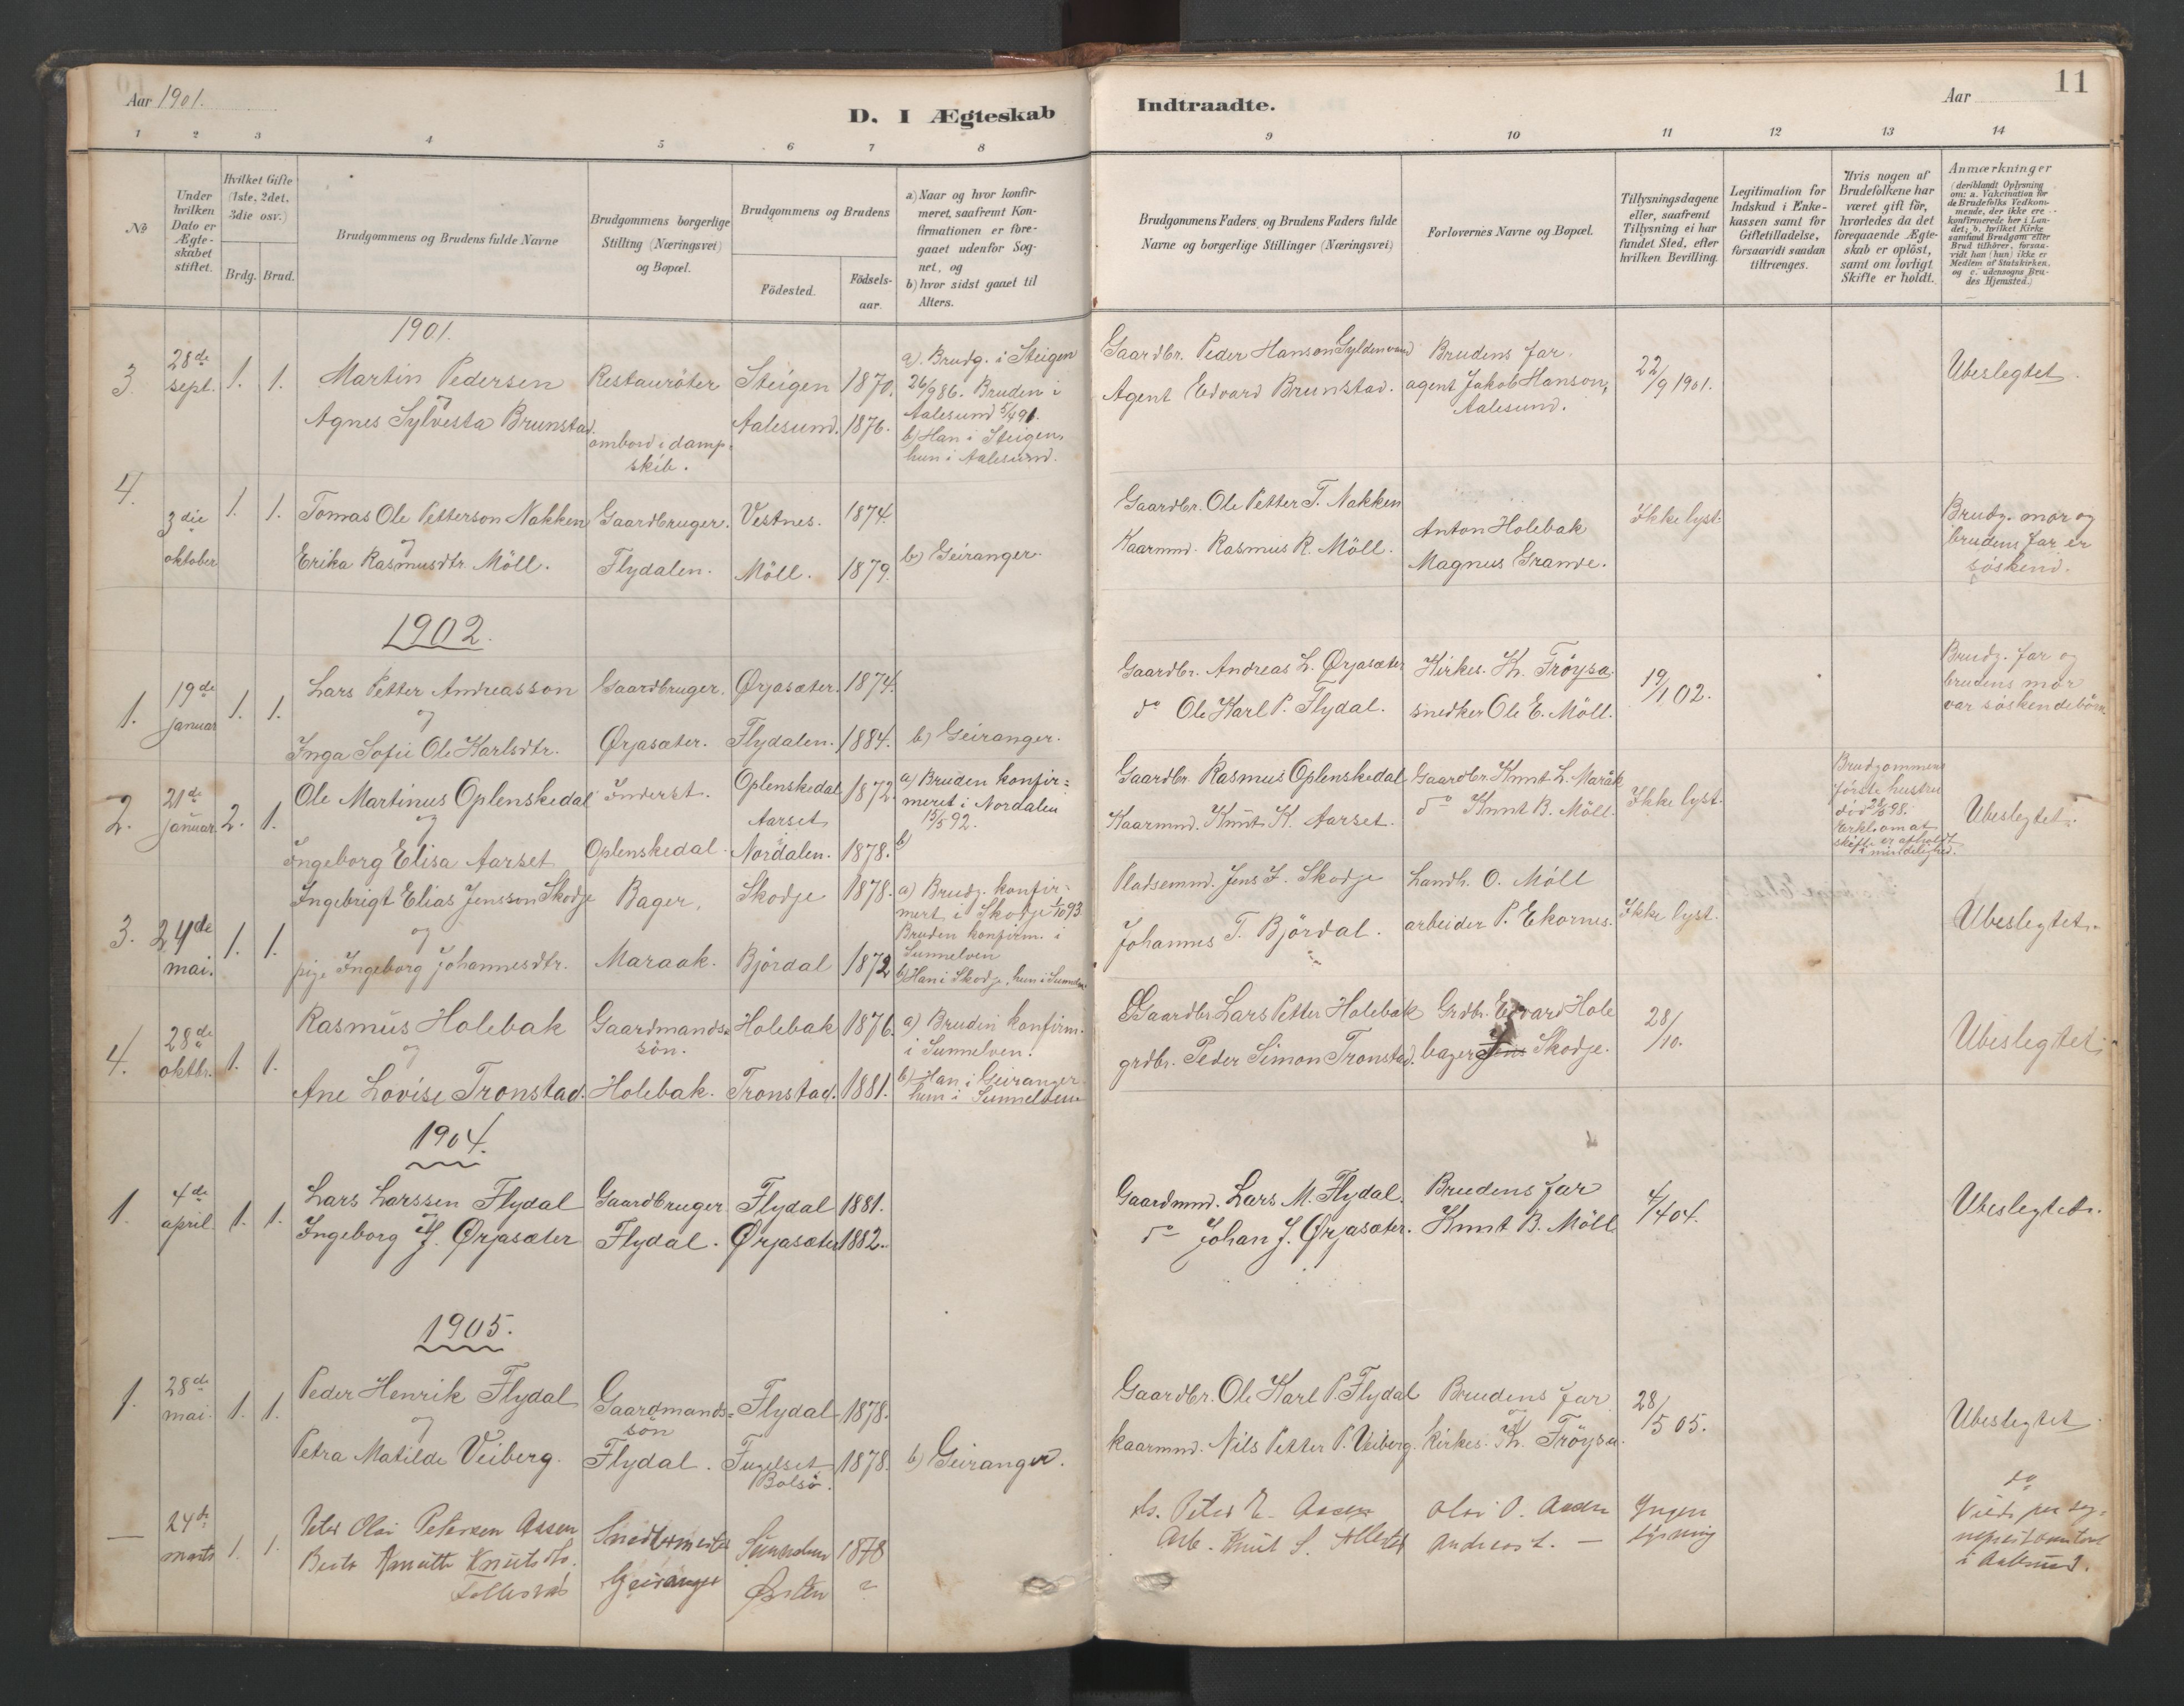 Aar 1901.
D. I Ægteskab
Indtraadte.
Aar
11
1 2 3 4 5 6 7 8
9 10 11 12 13 14
No
Under hvilken Dato er Ægteskabet stiftet.
Hvilket Gifte (1ste, 2det, 3die osv.)
Brdg. Brud.
Brudgommens og Brudens fulde Navne
Brudgommens borgerlige Stilling (Næringsvei) og Bopæl.
Brudgommens og Brudens
Födested.
Födsels-aar.
a) Naar og hvor konfirmeret, saafremt Konfirmationen er foregaaet udenfor Sognet, og
b) hvor sidst gaaet til Alters.
Brudgommens Faders og Brudens Faders fulde Navne og borgerlige Stillinger (Næringsvei)
Forlovernes Navne og Bopæl.
Tillysningsdagene eller, saafremt Tillysning ei har fundet Sted, efter hvilken Bevilling.
Legitimation for Indskud i Enkekassen samt for Giftetilladelse, forsaavidt saadan tiltrænges.
Hvis nogen af Brudefolkene har været gift för, hvorledes da det foregaaende Ægteskab er oplöst, samt om lovligt Skifte er holdt.
Anmærkninger
(deriblandt Oplysning om: a. Vakcination for de Brudefolks Vedkommende, der ikke ere konfirmerede her i Landet; b. hvilket Kirkesamfund Brudgom eller Brud tilhörer, forsaavidt han (hun) ikke er Medlem af Statskirken, og c. udensogns Brudes Hjemsted.)
1901.
3. 28de sept. 1. 1. Martin Pedersen og Agnes Sylvesta Brunstad.
Restauröter ombord i dampskib.
Steigen 1870.
Aalesund. 1876.
a). Brudg. i Steigen 26/9 86. Bruden i Aalesund 5/4 91.
b) Han i Steigen, hun i Aalesund.
Gaardbr. Peder Hanson Gyldenvand
Agent Edvard Brunstad.
Brudens far.
agent Jakob Hanson, Aalesund.
22/9 1901.
Ubeslegtet.
4. 3die oktober 1. 1. Tomas Ole Petterson Nakken og Erika Rasmusdtr. Möll.
Gaardbruger. Flydalen.
Vestnes. 1874.
Möll. 1879.
b) Geiranger.
Gaardbr. Ole Petter T. Nakken
Kaarmnd. Rasmus R. Möll.
Anton Holebak
Magnus Grande.
Ikke lyst.
Brudg. mor og brudens far er söskend.
1902.
1. 19de januar 1. 1. Lars Petter Andreasson og Inga Sofie Ole Karlsdtr.
Gaardbruger. Ørjasæter.
Ørjasæter. 1874.
Flydalen. 1884.
b) Geiranger.
Gaardbr. Andreas L. Ørjasæter
do Ole Karl P. Flydal.
Kirkes. K. Fröysa.
snedker Ole E. Möll.
19/1 02.
Brudg. far og brudens mor var söskendebörn
2. 21de januar. 2. 1. Ole Martinus Oplenskedal og Ingeborg Elisa Aarset
Inderst. Oplenskedal.
Oplenskedal 1872.
Aarset Nordalen. 1878.
a) Bruden konfirmeret i Nordalen 15/5 92.
b)
Gaardbr. Rasmus Oplenskedal
Kaarmnd. Knut K. Aarset.
Gaardbr. Knut L. Maråk
do Knut B. Möll.
Ikke lyst.
Brudgommens förste hustru död 98. Erkl. om at skifte er afholdt i mindelighed.
Ubeslegtet.
3. 24de mai. 1. 1. Ingebrigt Elias Jensson Skodje og pige Ingeborg Johannesdtr.
Bager, Maraak.
Skodje 1878.
Björdal 1872
a) Brudg. konfirmert i Skodje 1/10 93 Bruden konfirm. i Sunnelven
b) Han i Skodje, hun i Sunnelv.
Pladsemnd. Jens J. Skodje
Johannes T. Björdal.
Landh. O. Möll
arbeider P. Ekornes.
Ikke lyst.
Ubeslegtet.
4. 28de oktbr. 1. 1. Rasmus Holebak og Ane Lovise Tronstad.
Gaardmandssön. Holebak.
Holebak 1876.
Tronstad. 1881.
a) Bruden konfirm. i Sunnelven.
b) Han i Geiranger hun i Sunnelven
Gaardbr. Lars Petter Holebak
grdbr. Peder Simon Tronstad.
Grdbr. Edvard Hole
bager Jens Skodje.
28/10.
Ubeslegtet
1904.
1. 4de april 1. 1. Lars Larssen Flydal og Ingeborg J. Ørjasæter
Gaardbruger Flydal.
Flydal 1881.
Ørjasæter 1882.
Gaardmnd. Lars M. Flydal.
do Johan J. Ørjasæter.
Brudens far
Knut B. Möll
4/4 04.
Ubeslegtet.
1905.
1. 28de mai. 1. 1. Peder Henrik Flydal og Petra Matilde Veiberg.
Gaardmandssön Flydal.
Flydal 1878.
Fugelset Bolsö. 1878.
b) Geiranger.
Gaardbr. Ole Karl P. Flydal
kaarmnd. Nils Petter P. Veiberg.
Brudens far
Kirkes. K. Fröysa.
28/5 05.
Ubeslegtet.
— 24de marts 1. 1. Peter Olai Petersen Aasen
Berte Knutsdtr.
Geiranger
Sunnelven 1878
Ørsten ?
Peter E. Aasen
Arb. Knut S.
Olai O. Aasen
Andreas L. —
Ingen lysning
do
Viede
i Aalesund.